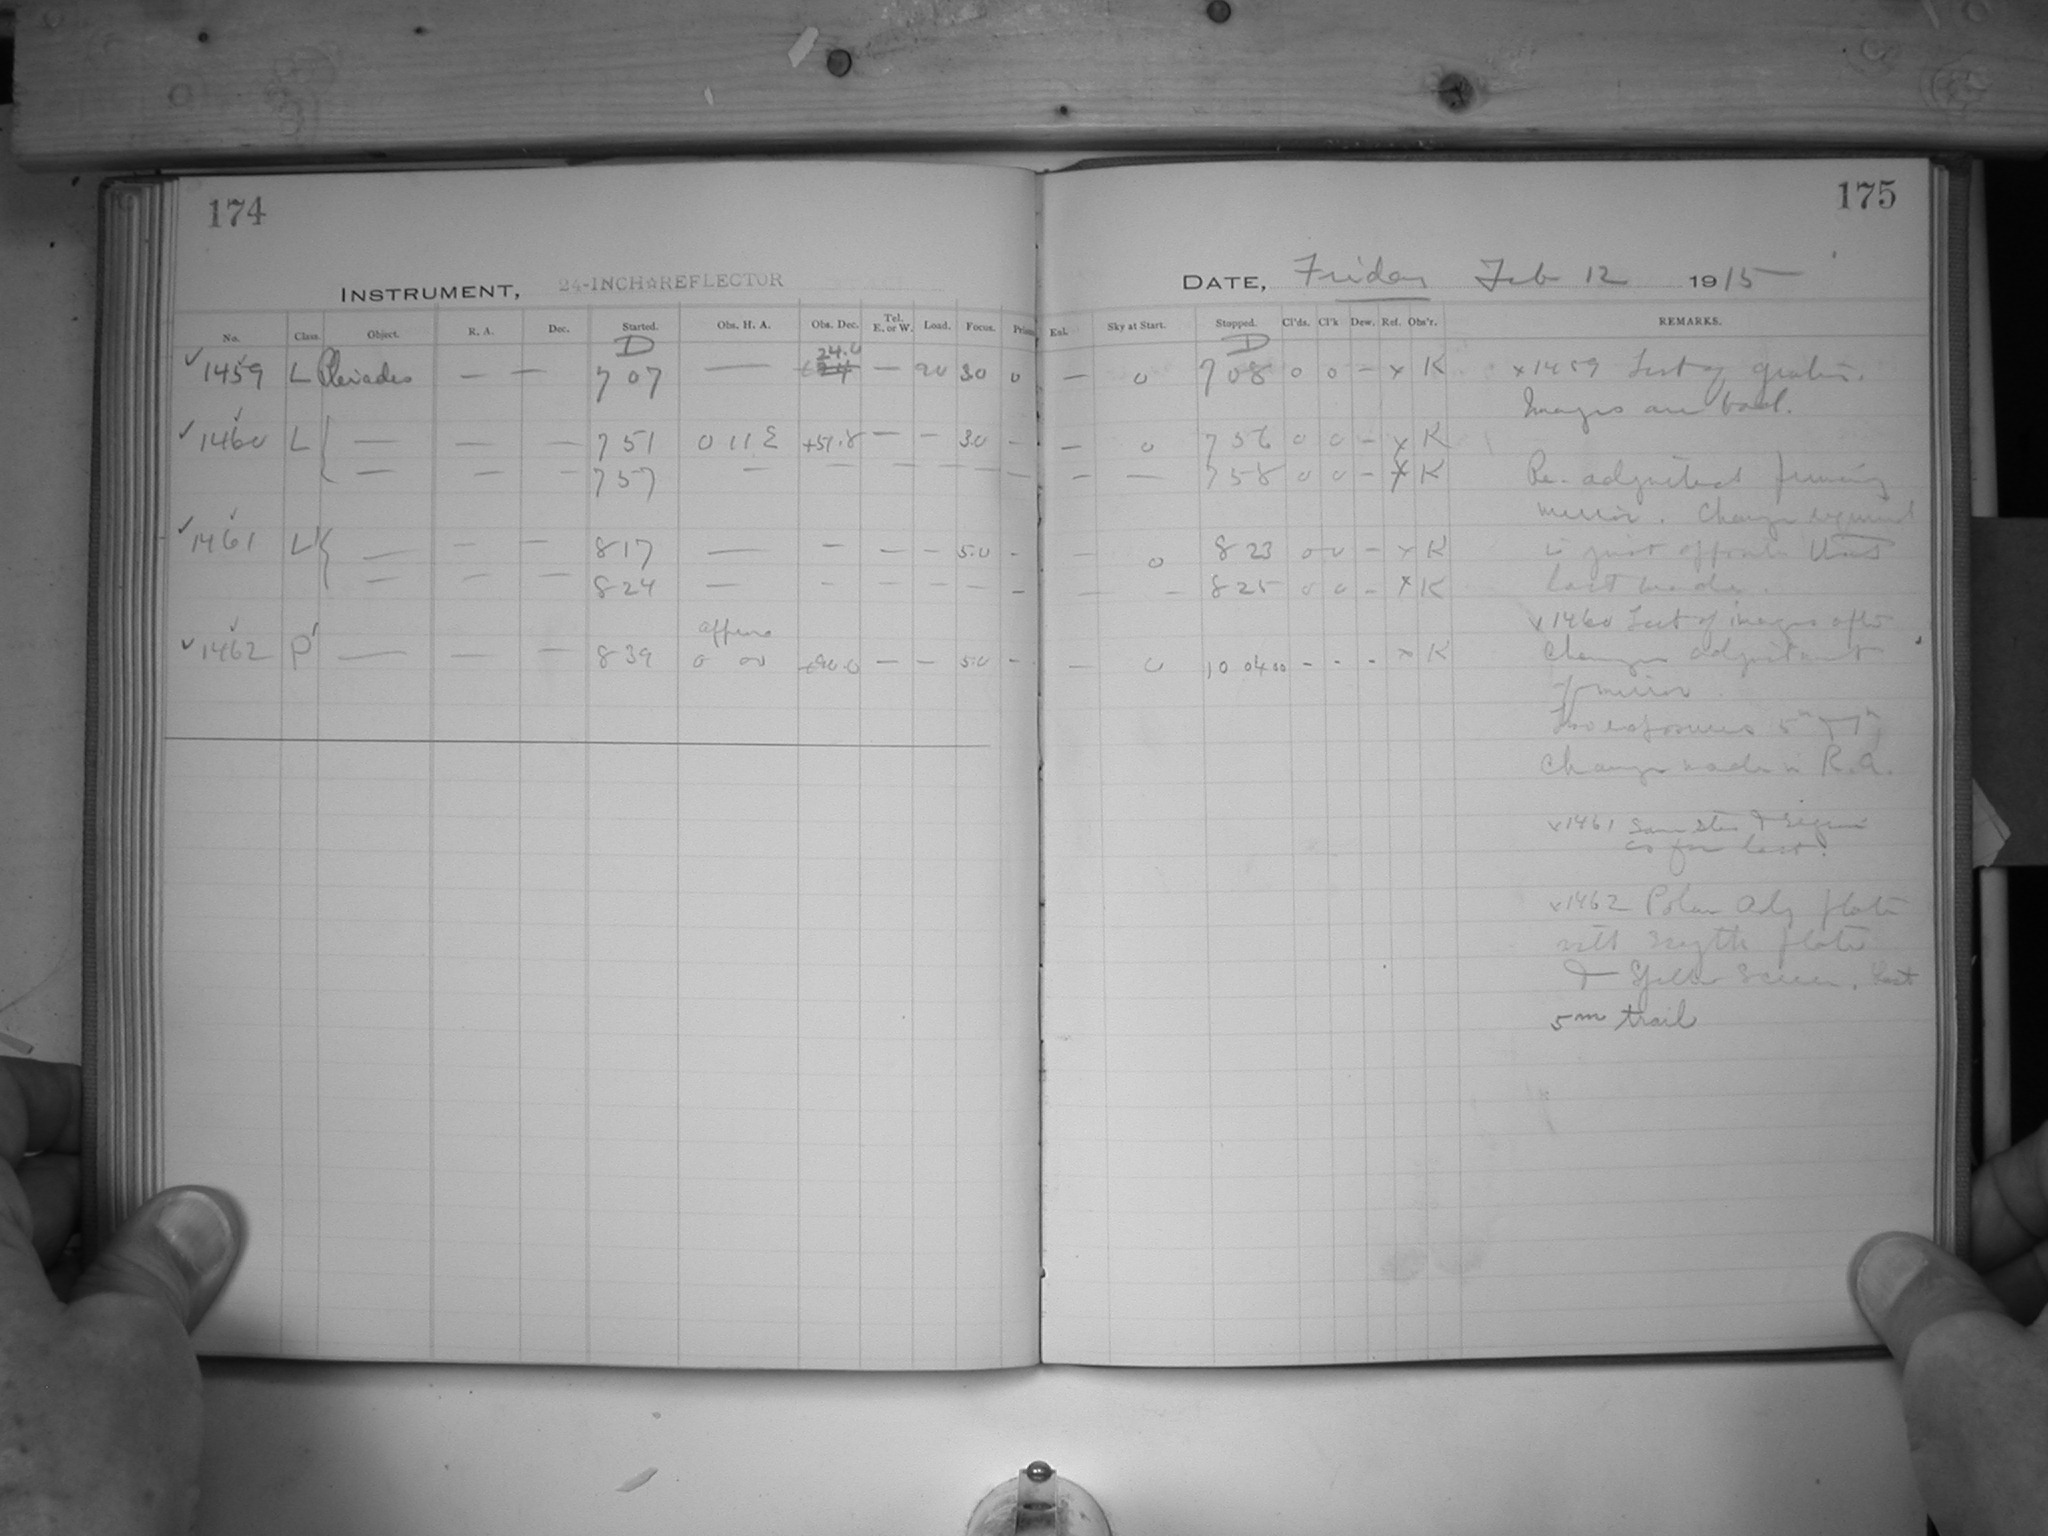 174
175
INSTRUMENT, 24-INCH☆REFLECTOR
DATE, Friday Feb 12 1915
No. Class. Object. R. A. Dec. Started. Obs. H. A. Obs. Dec. Tel. E. or W. Load. Focus. Prism Exl. Sky at Start. Stopped. Cl'ds. Cl'k Dew. Ref. Obs'r. REMARKS.
D D
24.0
✓ 1459 L Pleiades — — 7 07 — — 20 3.0 0 — 0 7 08 0 0 - x K x 1459 Test of
Images are bad.
✓ 1460 L — — — 7 51 0 11 E +51.8 — - 3.0 - — 0 7 56 0 0 - x K
— — — 7 57 — — — — — — — — 7 58 0 0 - x K Re-adjusted
mirror. Change required
✓ 1461 L — — — 8 17 — — — - 5.0 - — 0 8 23 0 0 - x K is just opposite that
— — — 8 24 — - - - - - — - 8 25 0 0 - x K last made.
x 1460 Test of images after
✓ 1462 P' — — — 8 39 0 00 +90.0 — - 5.0 - — 0 10 04 00 - - - x K changing adjustment
of mirror.
Two exposures 5m & 1m,
Change made in R.A.
x 1461 Same
as for last.
x 1462 Polar Adj plate
with plate
& Yellow Screen. Last
5m trail